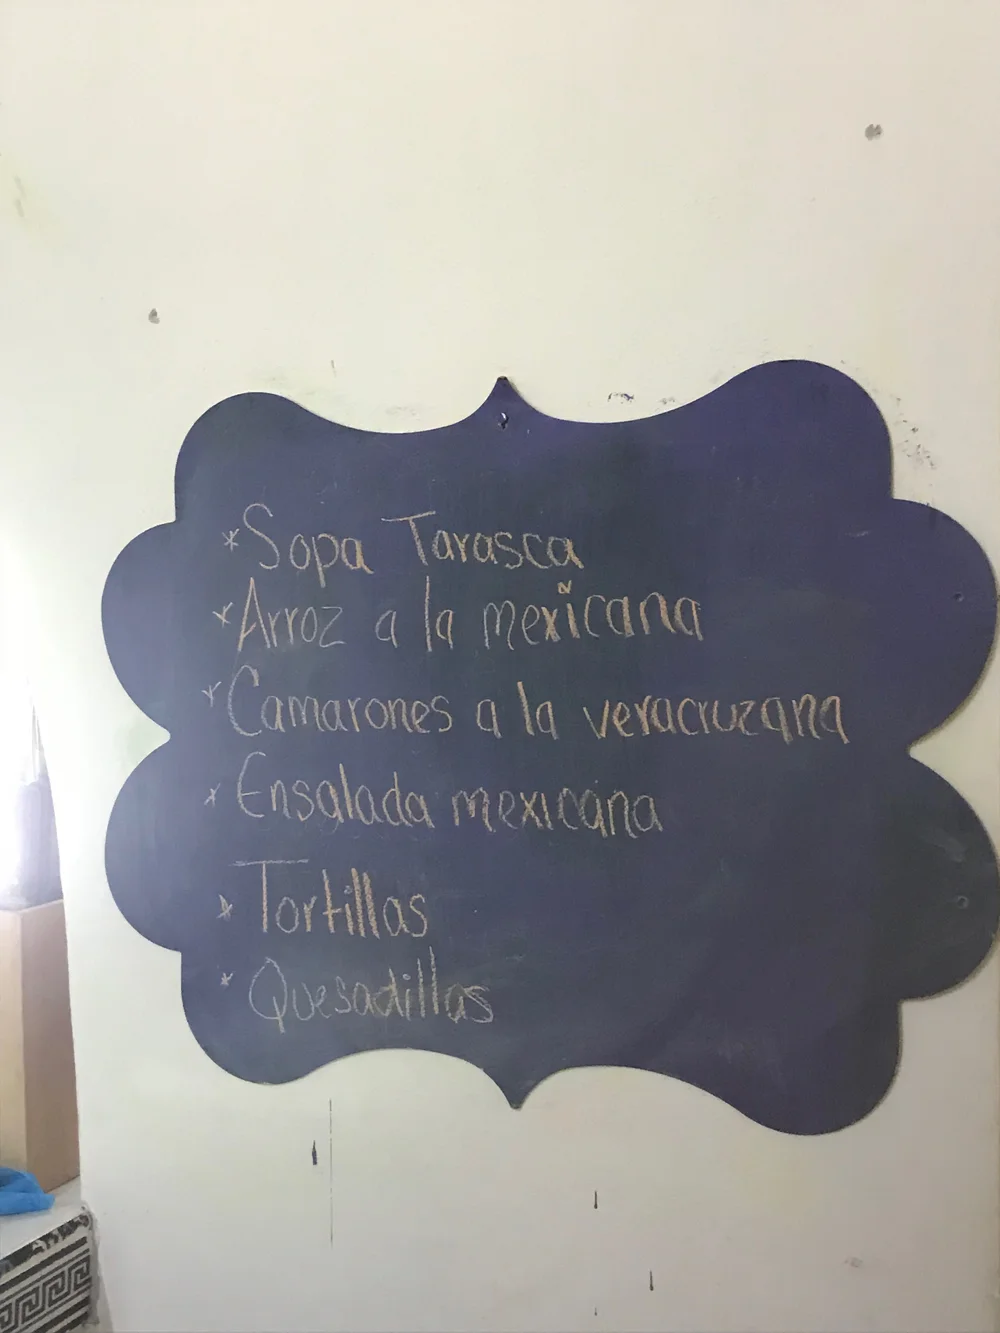 * Sopa Tarasca
* Arroz a la mexicana
* Camarones a la veracruzana
* Ensalada mexicana
* Tortillas
* Quesadillas